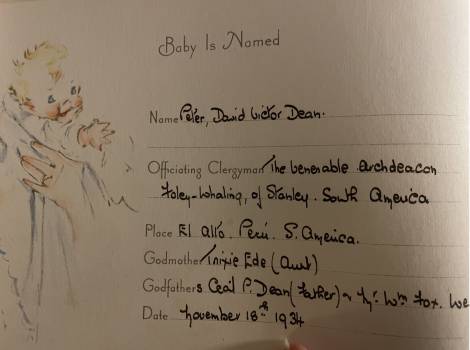 Baby Is Named
Name Peter, David Victor Dean.
Officiating Clergyman The Venerable archdeacon
Foley-Whaling, of Stanley. South America
Place El Alto. Peru. S. America.
Godmother Trixie Ede (Aunt)
Godfathers Cecil P. Dean (Father) & Mr. Wm Fox.
Date November 18th 1934